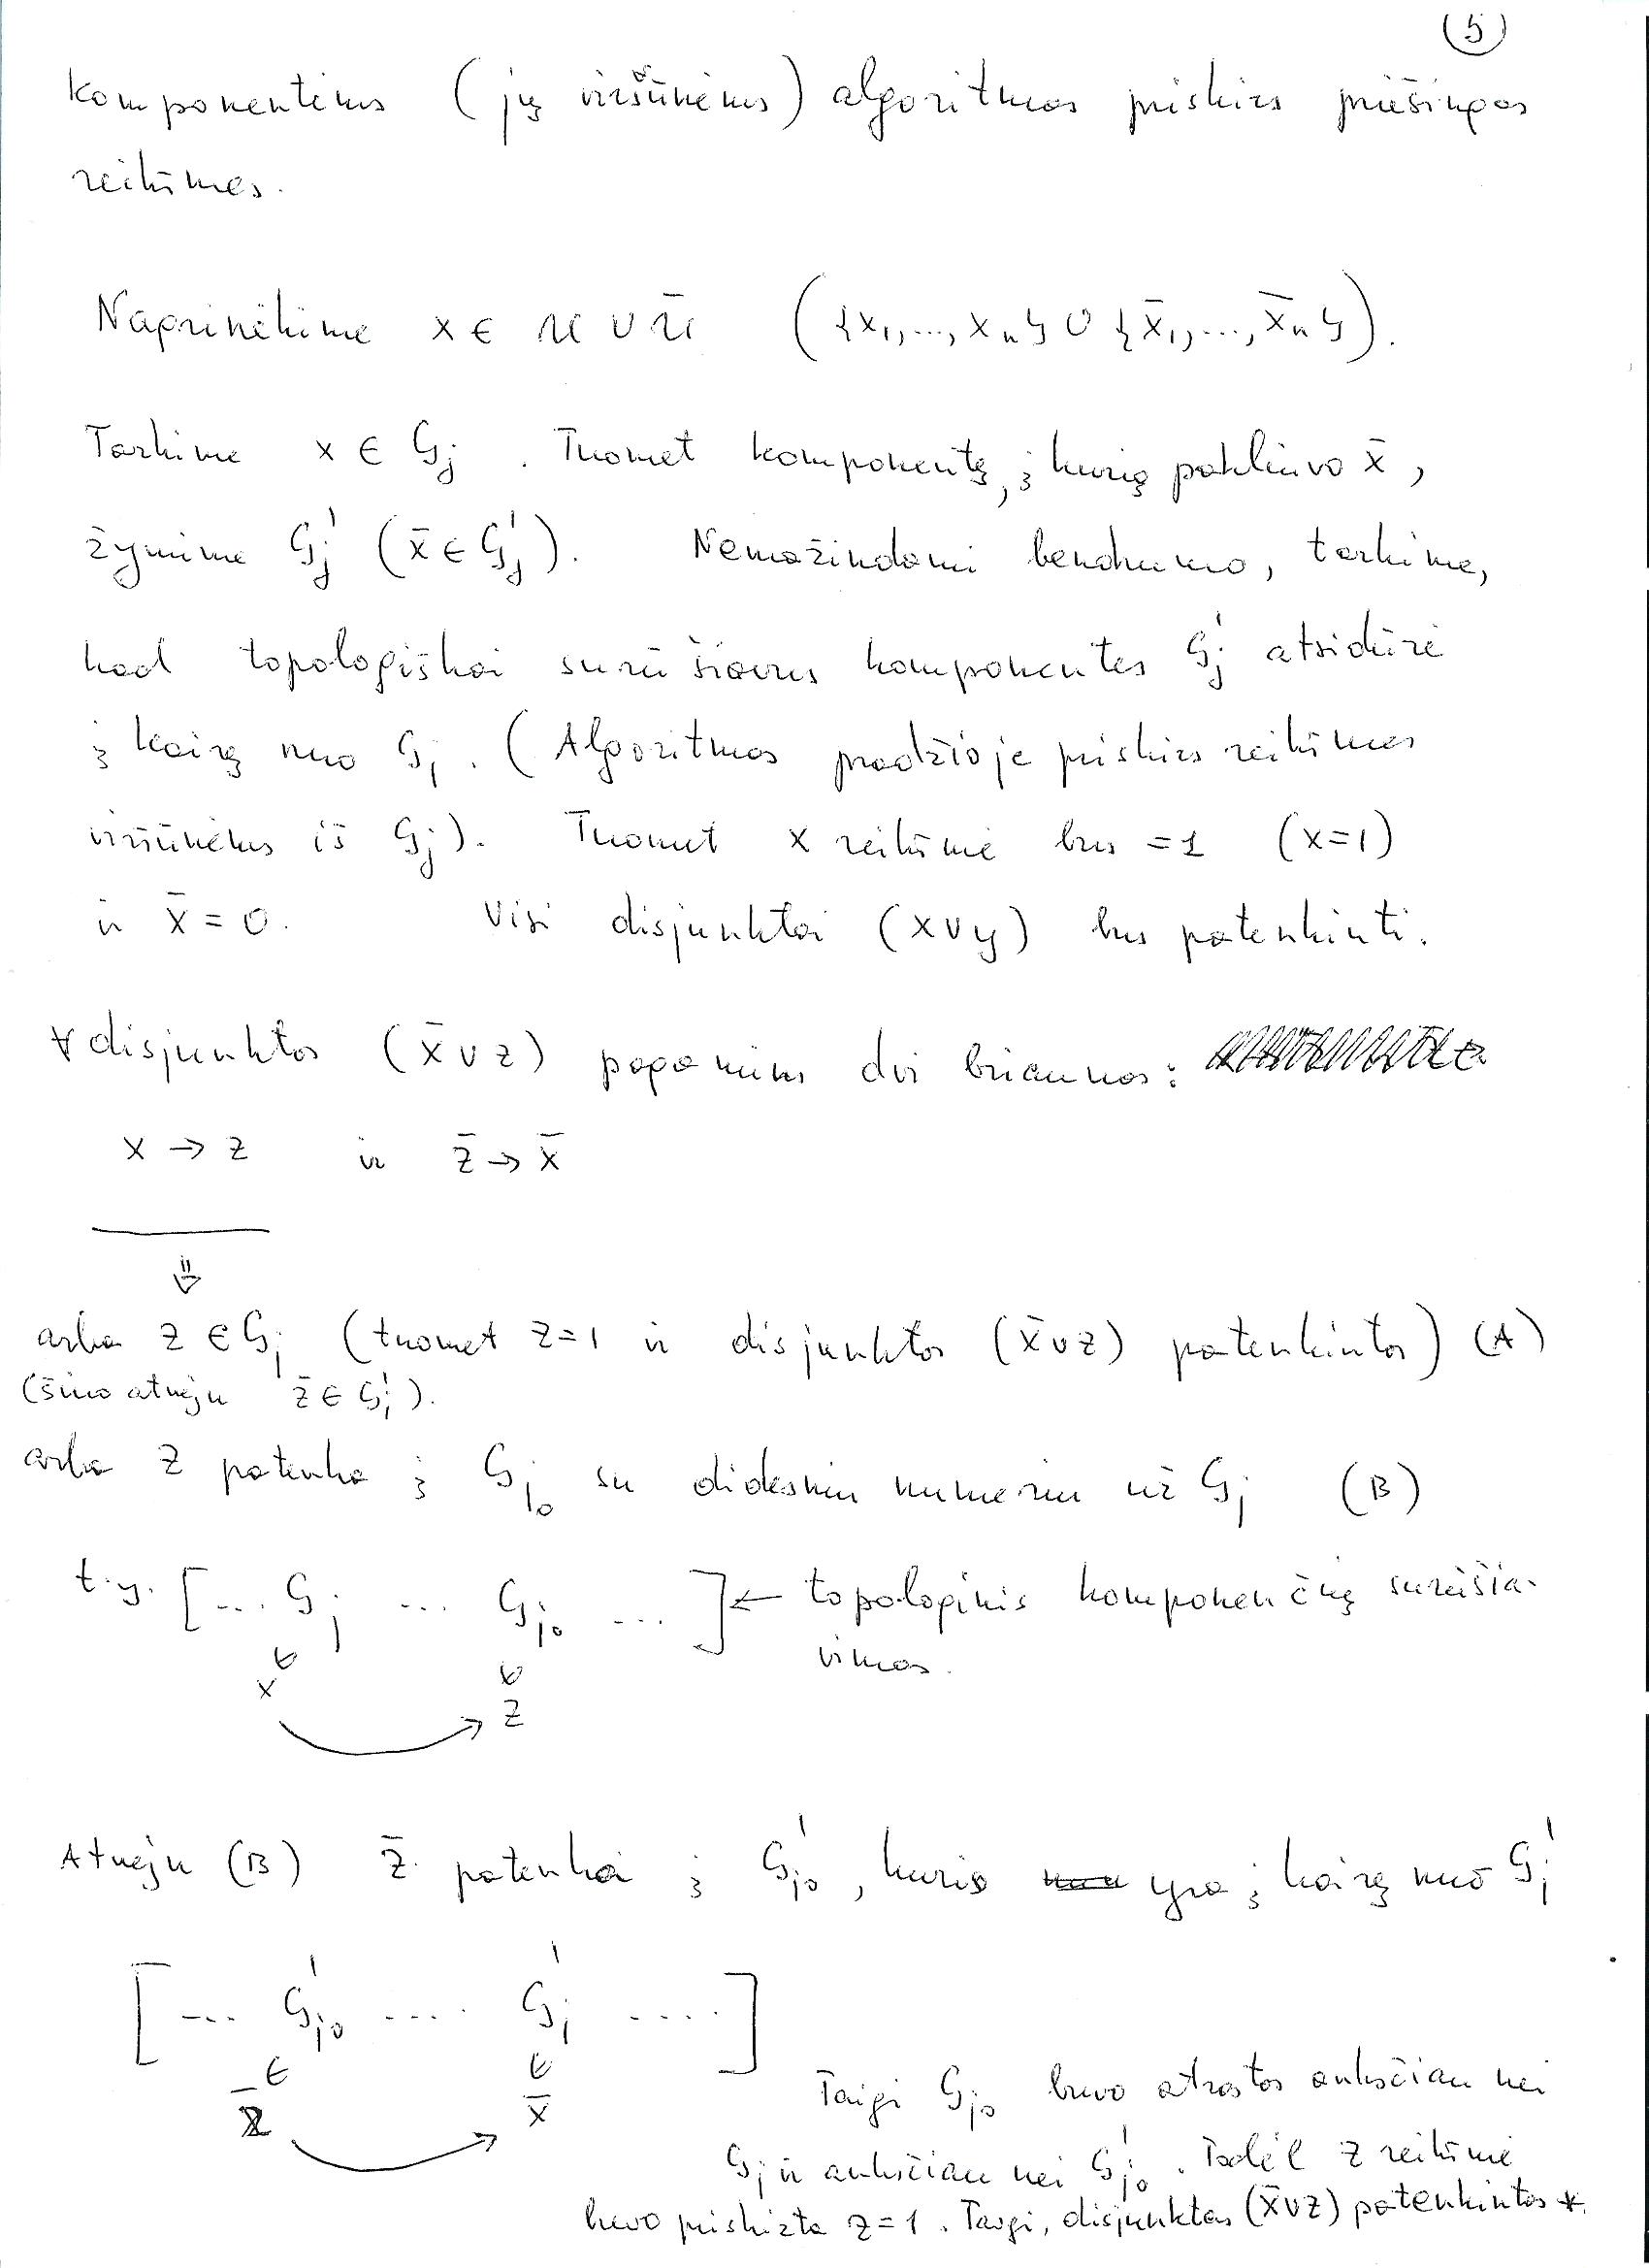 (5)
komponentėms (jų viršūnėms) algoritmas priskirs priešingas
reikšmes.
Nagrinėkime x ∈ U ∪ Ū ({x₁,...,xₙ} ∪ {x̄₁,...,x̄ₙ}).
Tarkime x ∈ Gⱼ. Tuomet komponentę, į kurią pakliuvo x̄,
žymime Gⱼ' (x̄ ∈ Gⱼ'). Nemažindami bendrumo, tarkime,
kad topologiškai surūšiavus komponentes Gⱼ' atsidūrė
į kairę nuo Gⱼ. (Algoritmas pradžioje priskirs reikšmes
viršūnėms iš Gⱼ). Tuomet x reikšmė bus =1 (x=1)
ir x̄ = 0. Visi disjunktai (x∨y) bus patenkinti.
∀ disjunktas (x̄∨z) pagamins dvi briaunas:
x → z ir z̄ → x̄
⇓
arba z ∈ Gⱼ (tuomet z=1 ir disjunktas (x̄∨z) patenkintas) (A)
(šiuo atveju z̄ ∈ Gⱼ').
arba z patenka į Gⱼ₀ su didesniu numeriu už Gⱼ (B)
t.y. [... Gⱼ ... Gⱼ₀ ...] ← topologinis komponenčių surūšia-
vimas.
∈ ∈
x z
Atveju (B) z̄ patenka į Gⱼ₀', kuris yra į kairę nuo Gⱼ'
[ ... Gⱼ₀' .... Gⱼ' .... ]
∈ ∈
z̄ x̄
Taigi Gⱼ₀ buvo atrastas anksčiau nei
Gⱼ ir anksčiau nei Gⱼ₀'. Todėl z reikšmė
buvo priskirta z=1. Taigi, disjunktas (x̄∨z) patenkintas *.